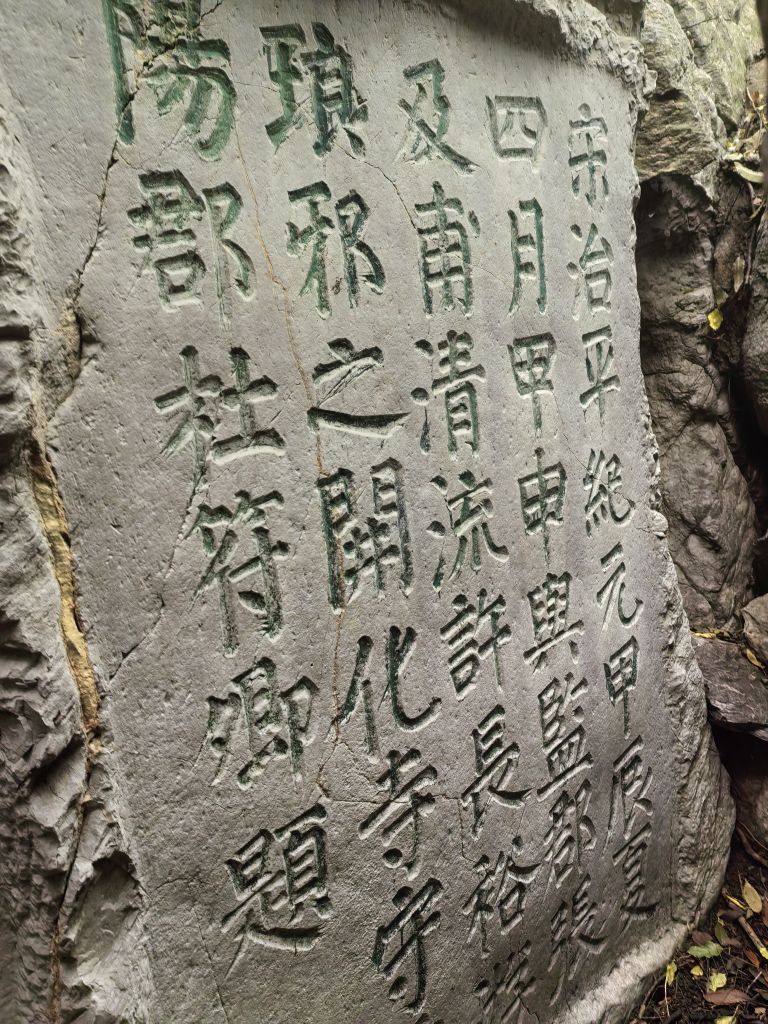 宋治平紀元甲辰夏
四月甲申與監郡張
及甫清流許長裕
琅邪之開化寺守
陽郡杜符卿題